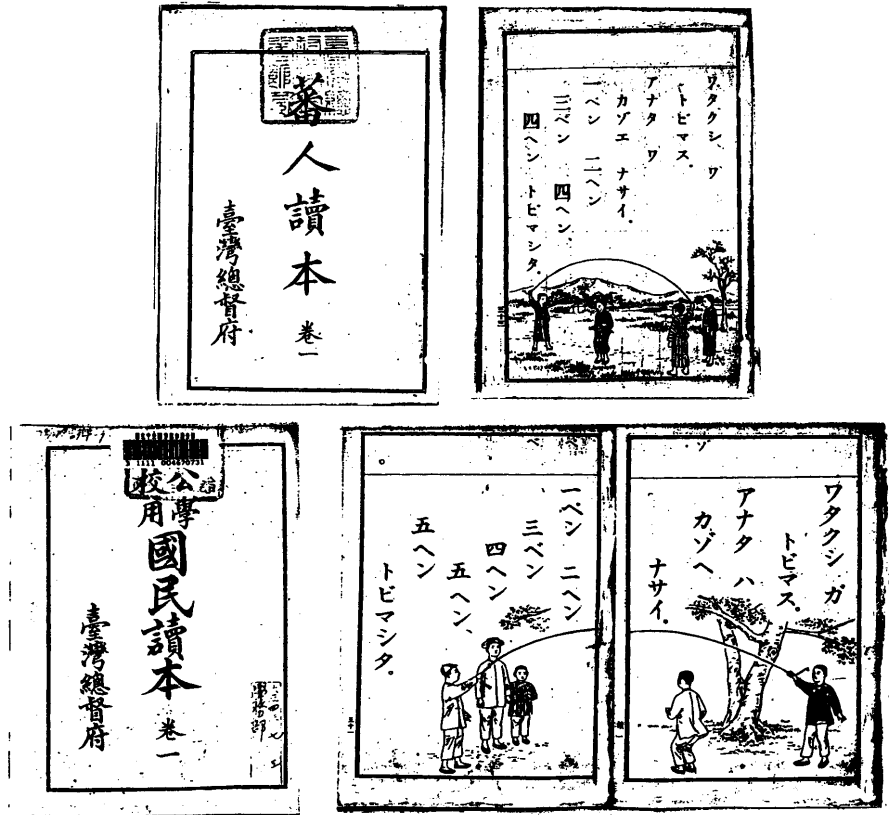 蕃人讀本 卷一
臺灣總督府
ワタクシ ワ
トビマス。
アナタ ワ
カゾエ ナサイ。
一ペン 二ヘン
三ベン 四ヘン、
四ヘン トビマシタ。
公學
校用
國民讀本 卷一
臺灣總督府
ゾ
ワタクシ ガ
トビマス。
アナタ ハ
カゾヘ
ナサイ。
一ペン 二ヘン
三ベン
四ヘン
五ヘン、
五ヘン
トビマシタ。